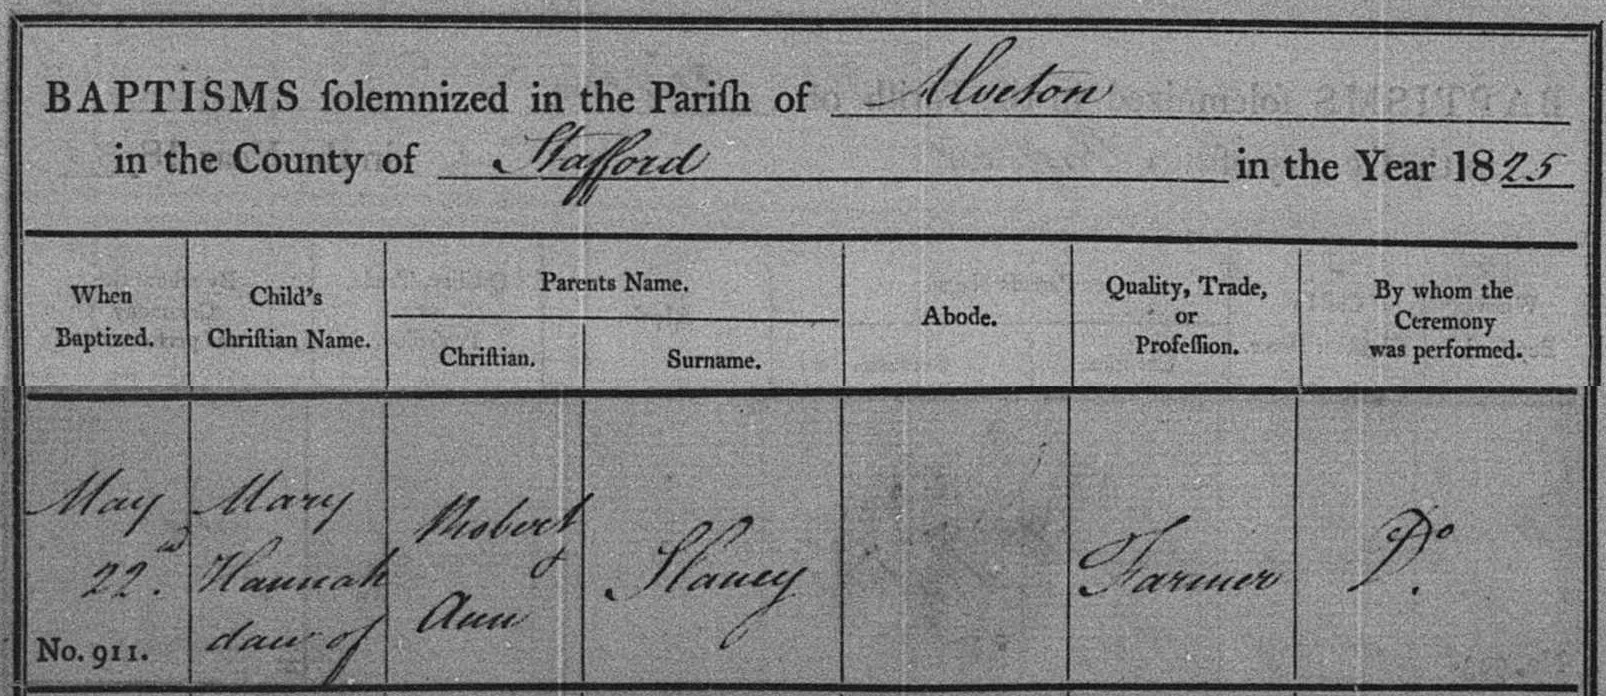 BAPTISMS ſolemnized in the Pariſh of Alveton
in the County of Stafford in the Year 1825
When
Baptized.
Child's
Chriſtian Name.
Parents Name.
Chriſtian.
Surname.
Abode.
Quality, Trade,
or
Profeſſion.
By whom the
Ceremony
was performed.
May
22nd.
No. 911.
Mary
Hannah
daur of
Robert
&
Ann
Slaney
Farmer
Do.